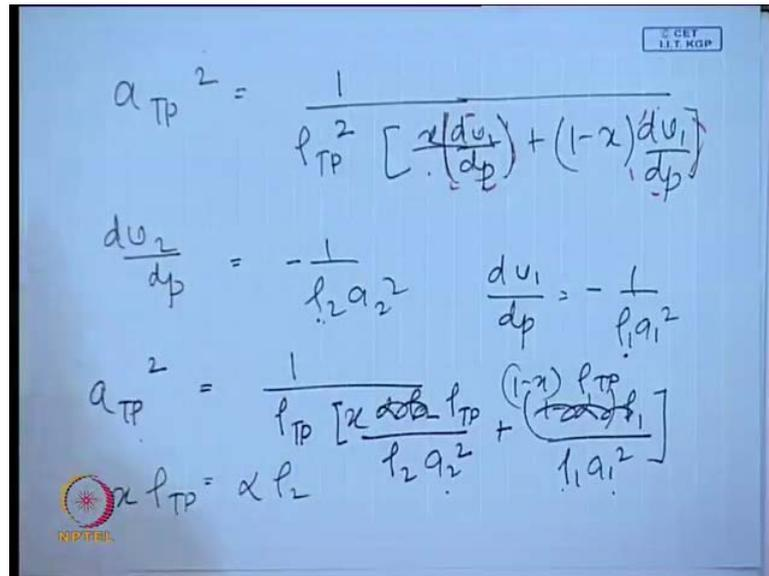 © CET
I.I.T. KGP
a_TP² = 1 / ρ_TP² [ x (dυ₁/dp) + (1-x) dυ₁/dp ]
dυ₂/dp = - 1/ρ₂a₂²    dυ₁/dp = - 1/ρ₁a₁²
a_TP² = 1 / ρ_TP [ x ρ_TP / ρ₂a₂² + (1-x) ρ_TP / ρ₁a₁² ]
x ρ_TP = α ρ₂
NPTEL